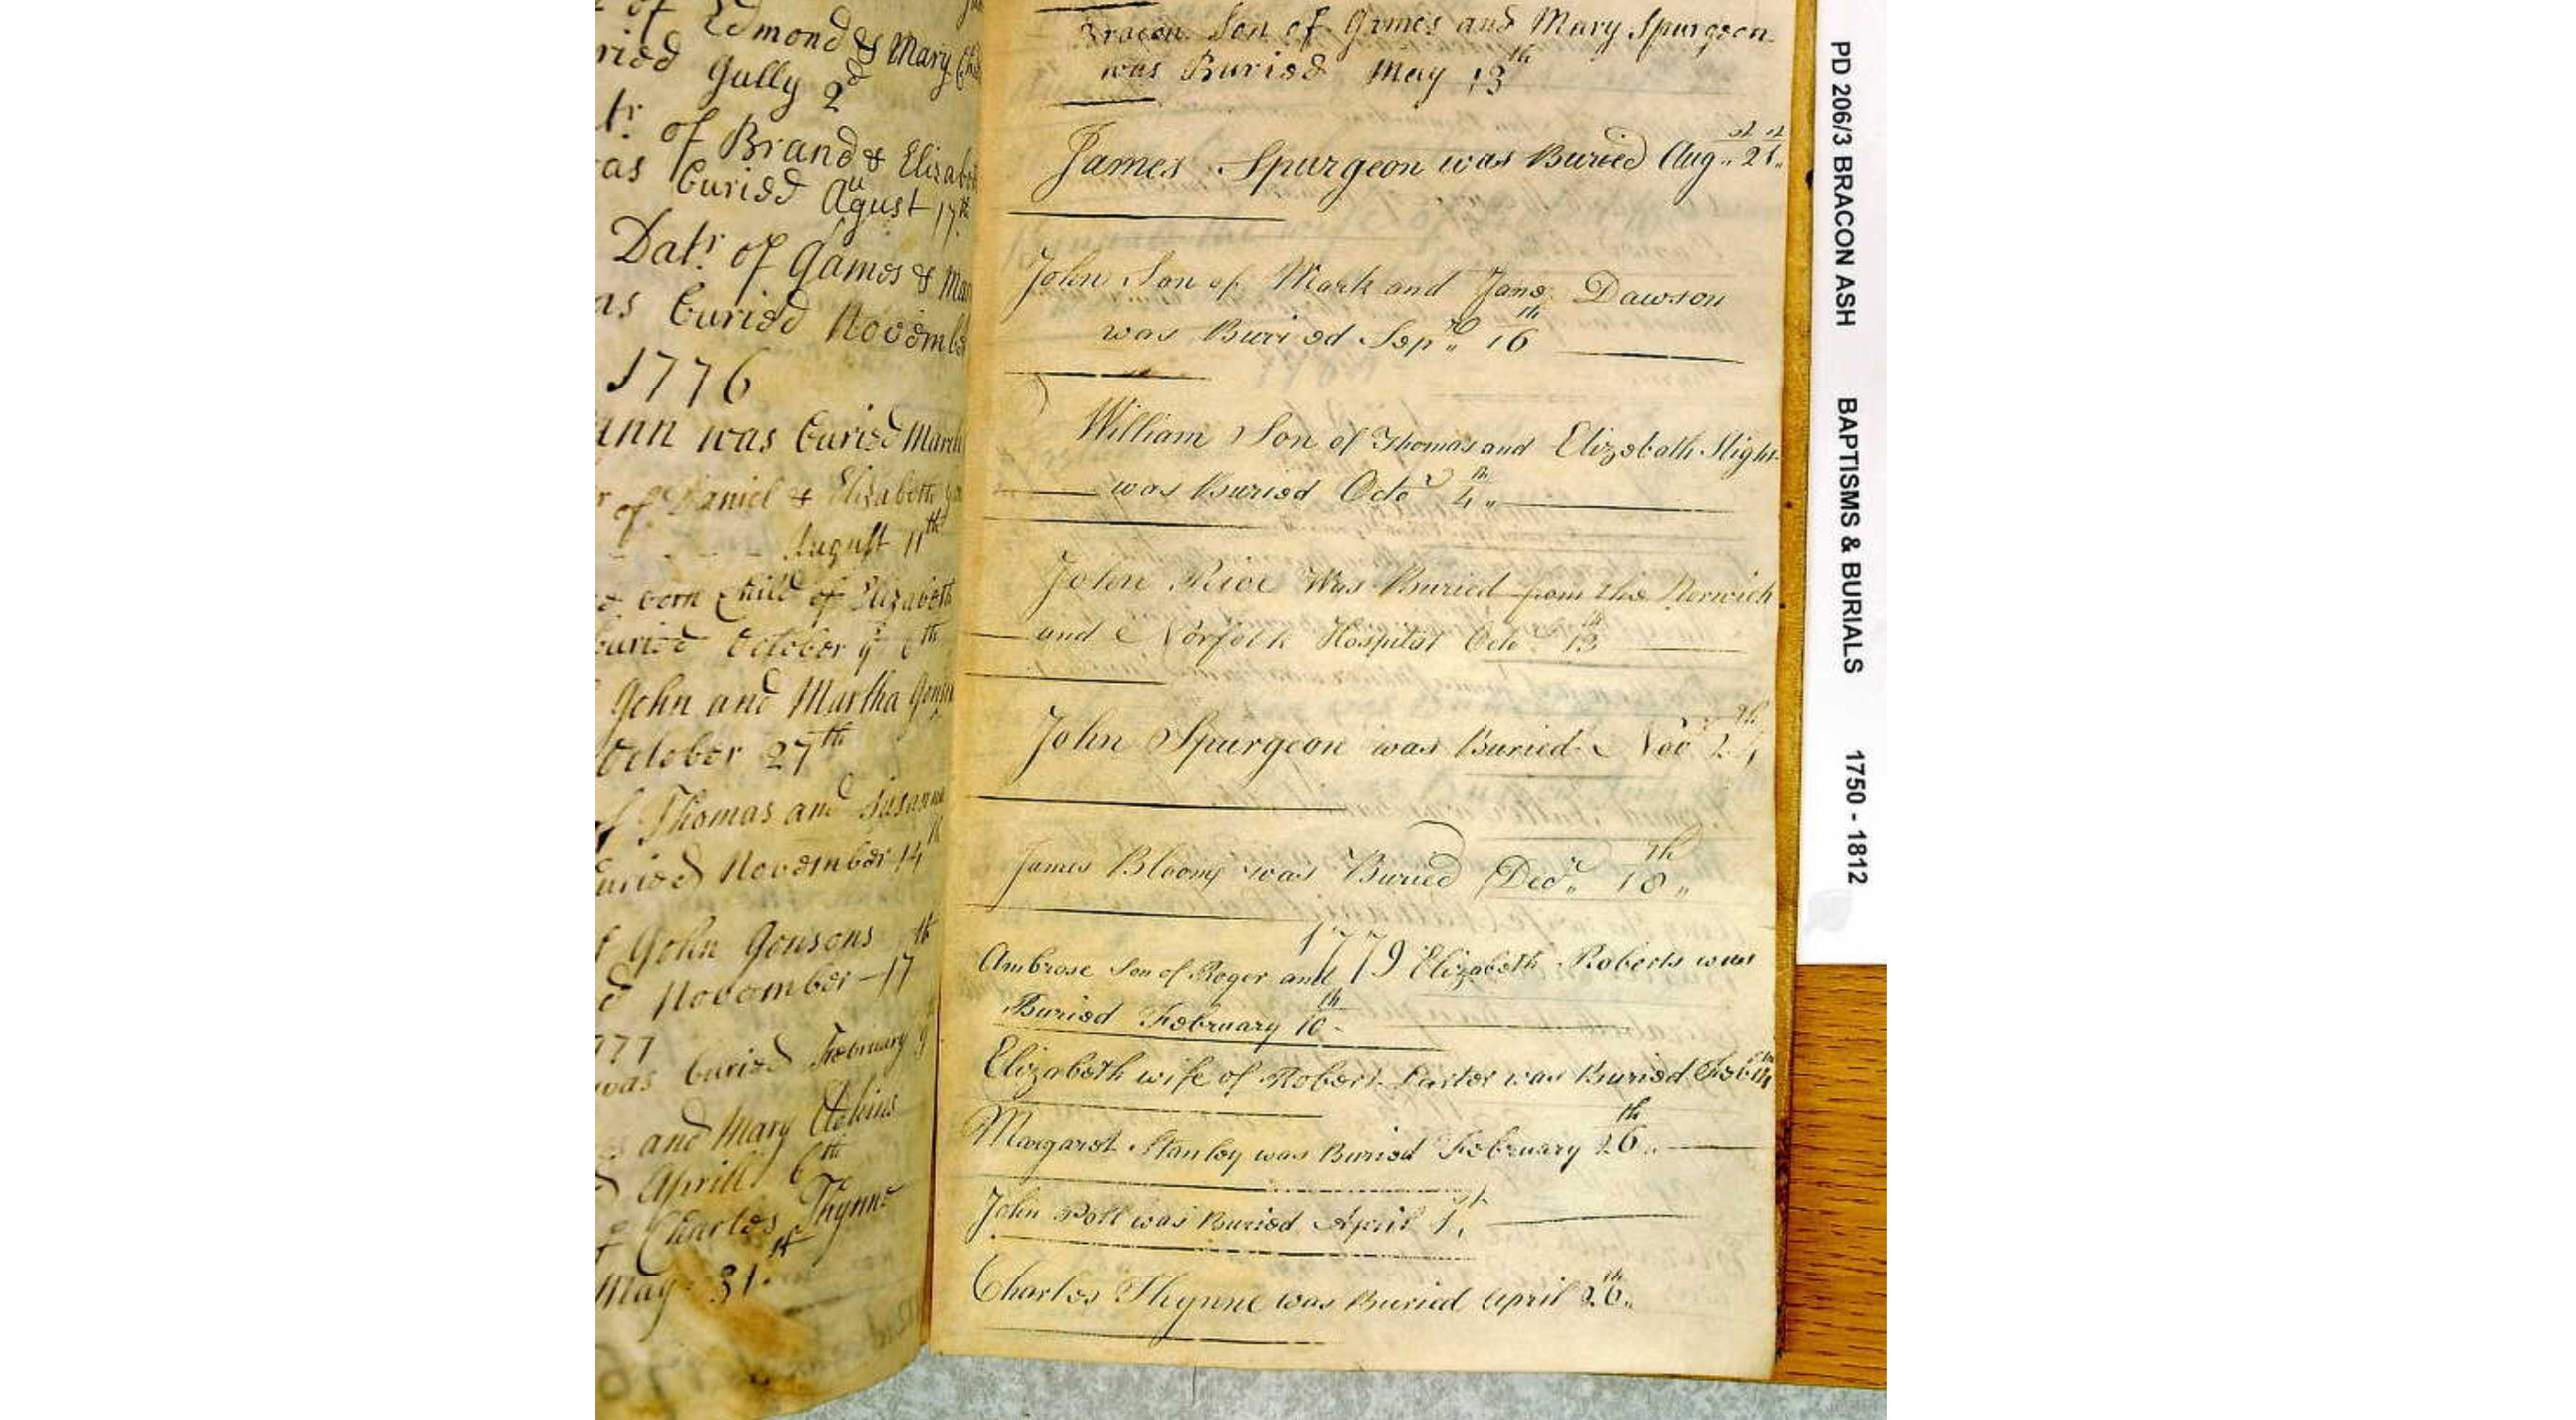 of Edmond & Mary
Gully 2d
of Brand & Elizab
as buried August 17th
Datr. of Games & Ma
as buried Novemb
1776
ann was buried March
of Daniel & Elizabeth
August 11th
born Child of Elizabeth
buried October ye 6th
John and Martha
October 27th
of Thomas and Susanna
buried November 14
John Gousons
November 17th
777
was buried February 9
and Mary Atkins
Aprill 6th
of Charles Thynne
May 31st
Bracon Son of Games and Mary Spurgeon
was Buried May 13th
James Spurgeon was Buried Augst 21st
John Son of Mark and Jane Dawson
was Buried Sepr 16th
William Son of Thomas and Elizabeth
was Buried Octor 4th
John Rice Was Buried from the Norwich
and Norfolk Hospital Octr 13th
John Spurgeon was Buried Novr
James Bloomf was Buried Decr 18th
1779
Ambrose Son of Roger and Elizabeth Roberts was
Buried February 10th
Elizabeth wife of Robert was Buried
Margaret Stanley was Buried February 26th
John Poll was Buried April 1st
Charles Thynne was Buried April 26th
PD 206/3 BRACON ASH BAPTISMS & BURIALS 1750 - 1812